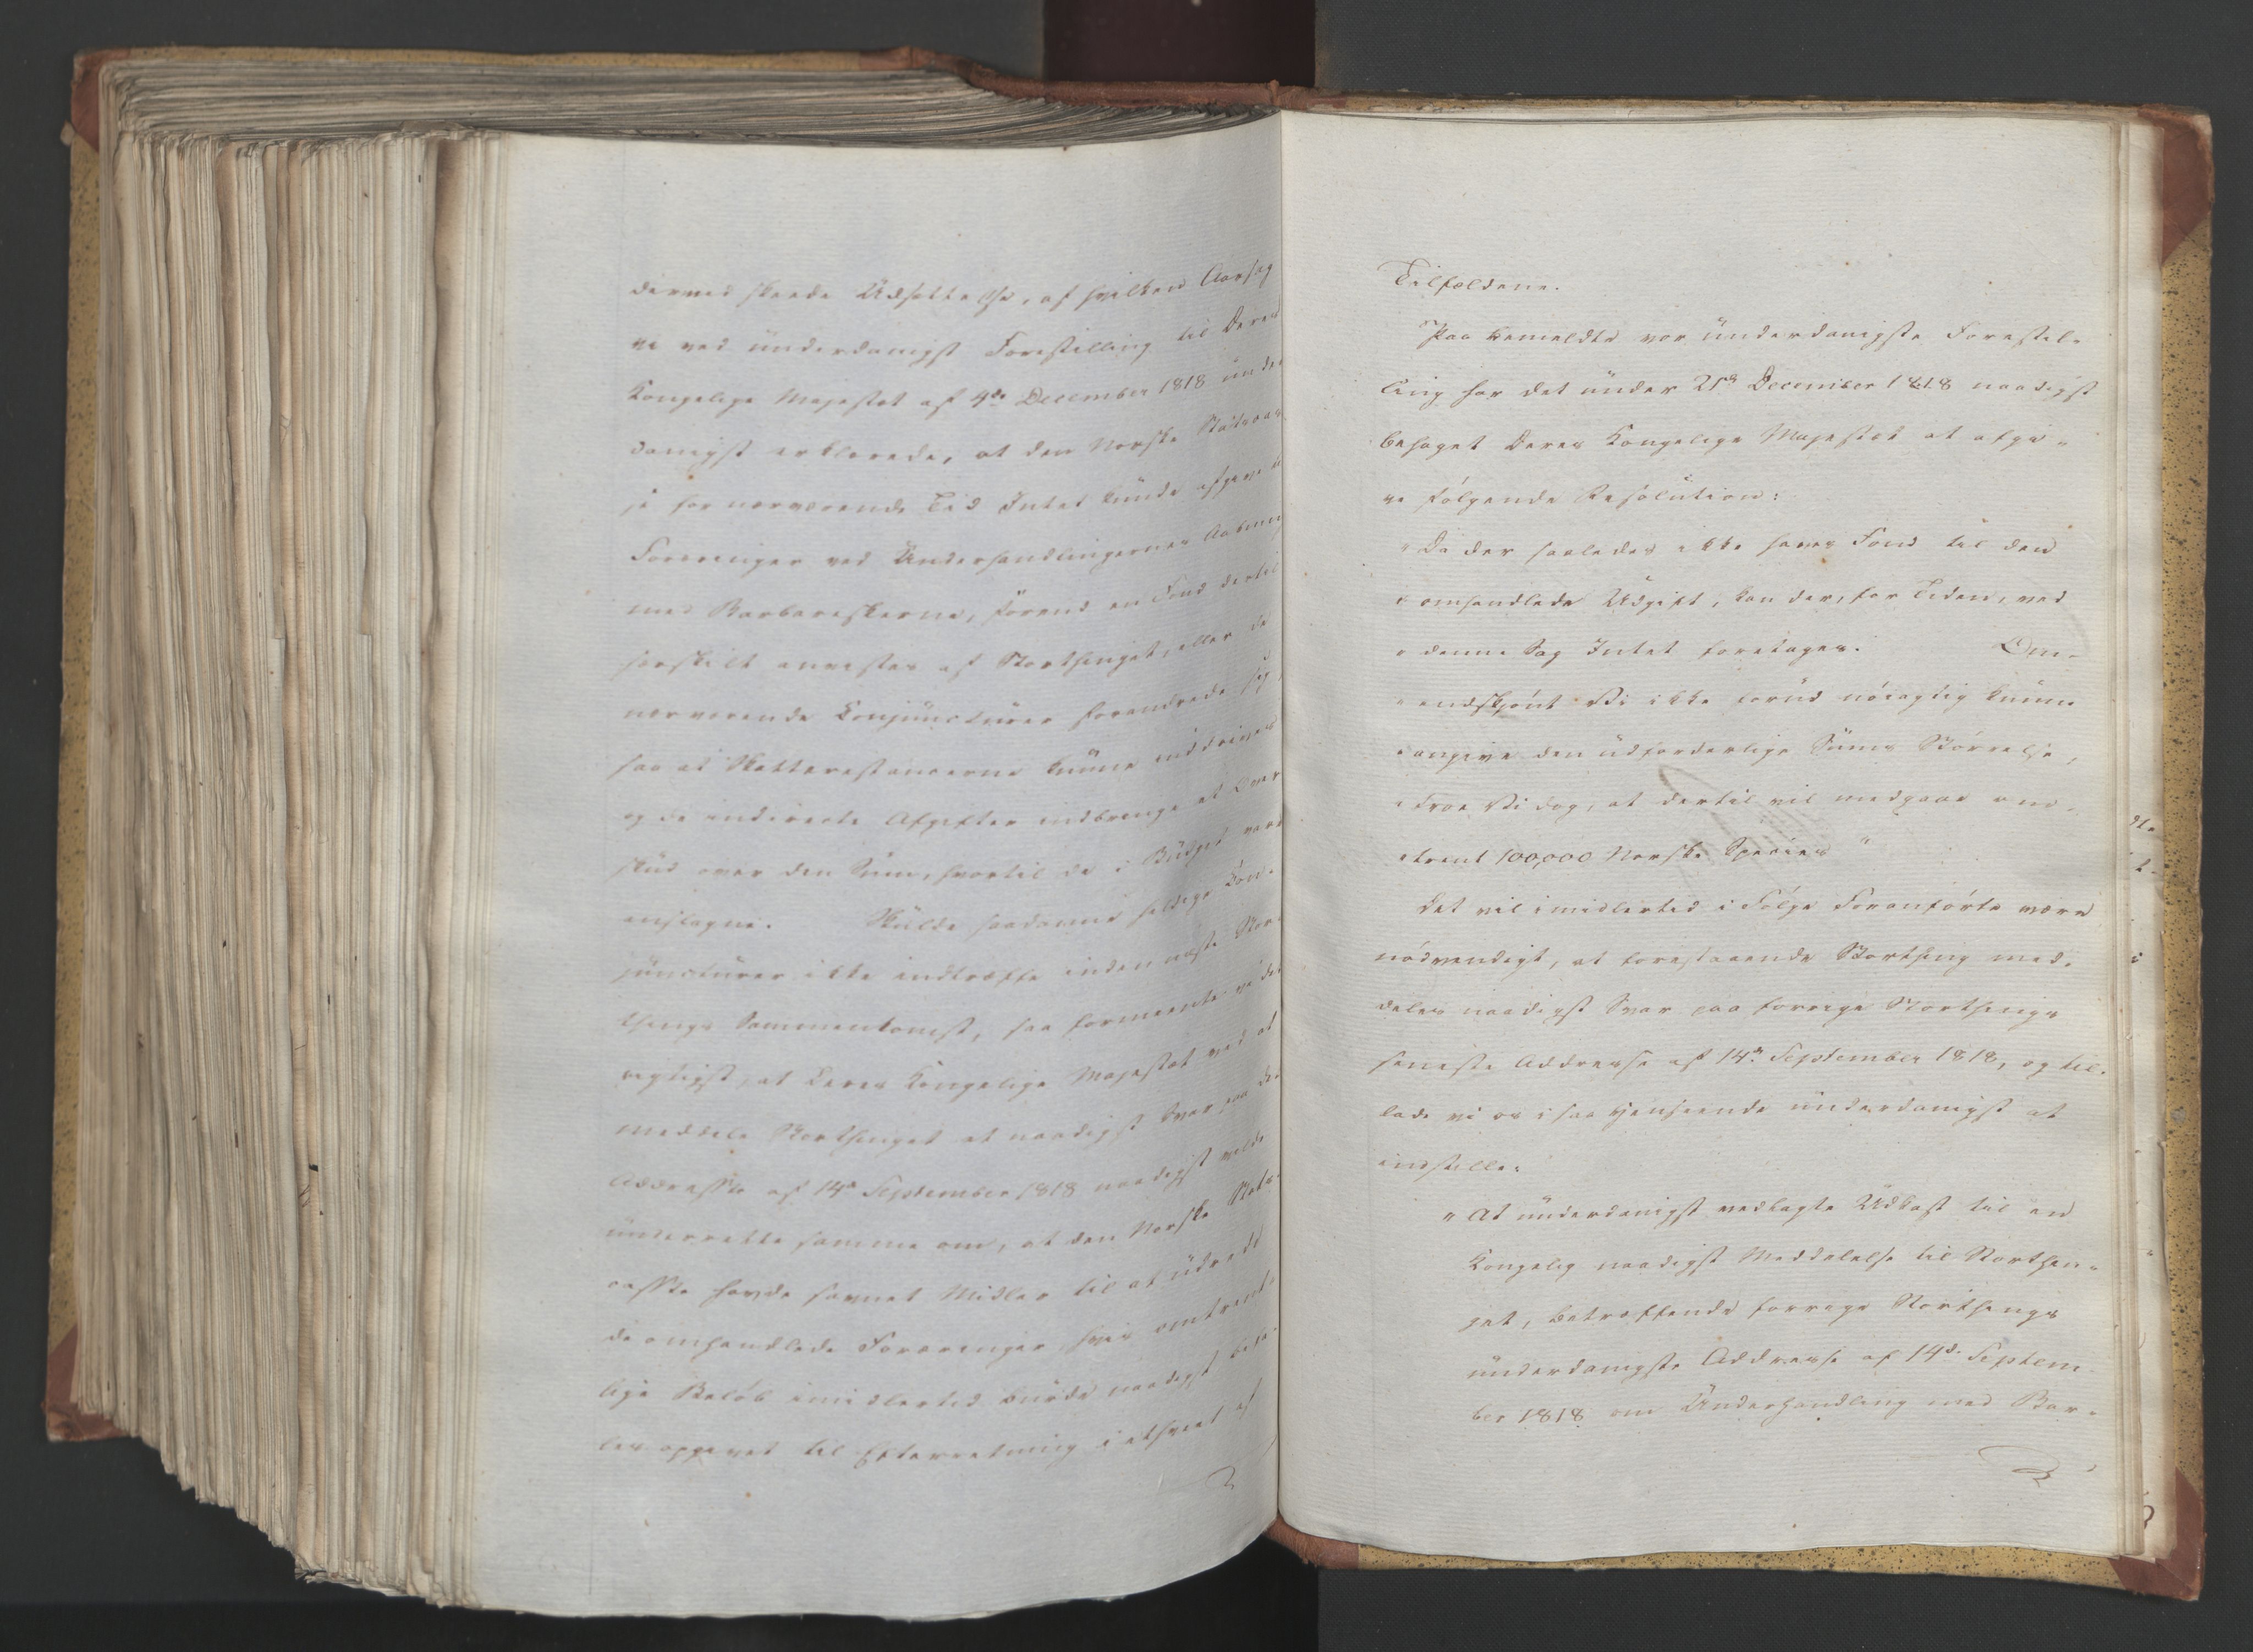 dermed skeede Udsættelse, af hvilken Aarsag
vi ved underdanigst Forestilling til Deres
Kongelige Majestæt af 4de December 1818 under
danigst erklærede, at den Norske Statscas
se for nærværende Tid Intet kunde afgive til
Foræringer ved Underhandlingernes Aabning
med Barbareskerne, förend en Fond dertil
særskilt anvistes af Storthinget, eller de
nærværende Conjuncturer forandrede sig,
saa at Skatterestancerne kunne inddrives
og de indirecte Afgifter indbringe et Over
skud over den Sum, hvortil de i Budget vare
anslagne. Skulde saadanne heldige Con-
juncturer ikke indtræffe inden næste Stor-
things Sammenkomst, saa formeente vi det
rigtigst, at Deres Kongelige Majestæt ved at
meddele Storthinget et naadigst Svar paa dets
Addresse af 14de September 1818 naadigst vilde
underrette samme om, at den Norske Stats-
casse havde savnet Midler til at udrede
de omhandlede Foræringer, hvis omtrent-
lige Belöb imidlertid burde naadigst befa-
les opgivet til Efterretning i ethvert af
Tilfældene.
Paa bemeldte vor underdanigste Forestil-
ling har det under 21de December 1818 naadigst
behaget Deres Kongelige Majestæt at afgi-
ve fölgende Resolution:
"Da der saaledes ikke haves Fond til den
"omhandlede Udgift, kan der, for Tiden, ved
"denne Sag Intet foretages. Om-
"endskjönt Vi ikke forud nöiagtig kunne
"angive den udforderlige Sums Störrelse,
"troe Vi dog, at dertil vil medgaae om-
"trent 100,000 Norske Species"
Det vil imidlertid i Fölge Foranförte være
nödvendigt, at forestaaende Storthing med-
deles naadigst Svar paa forrige Storthings
seneste Addresse af 14de September 1818, og til-
lade vi os i saa Henseende underdanigst at
indstille:
"At underdanigst vedlagte Udkast til en
Kongelig naadigst Meddelelse til Storthin-
get, betræffende forrige Storthings
underdanigste Addresse af 14de Septem
ber 1818 om Underhandling med Bar-